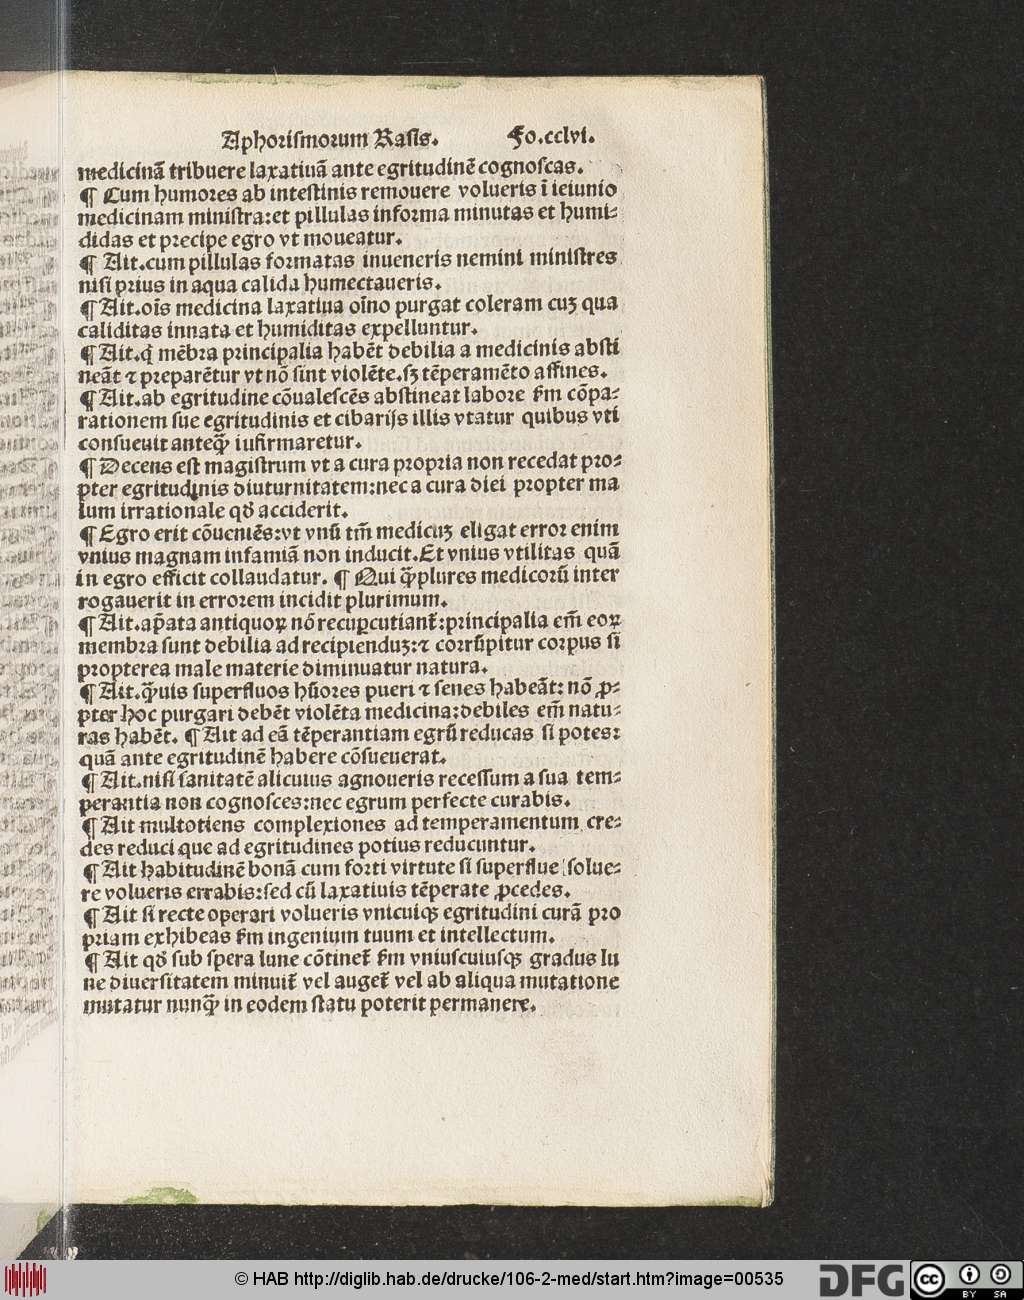 Aphorismorum Rasis. Fo.cclvi.
medicinā tribuere laxatiuā ante egritudinē cognoscas.
¶ Cum humores ab intestinis remouere volueris ī ieiunio
medicinam ministra:et pillulas informa minutas et humi⸗
didas et precipe egro vt moueatur.
¶ Ait.cum pillulas formatas inueneris nemini ministres
nisi prius in aqua calida humectaueris.
¶ Ait.oīs medicina laxatiua oīno purgat coleram cuꝫ qua
caliditas innata et humiditas expelluntur.
¶ Ait.ꝙ mēbra principalia habēt debilia a medicinis absti
neāt ⁊ preparētur vt nō sint violēte.sꝫ tēperamēto affines.
¶ Ait.ab egritudine cōualescēs abstineat labore ẜm cōpa⸗
rationem sue egritudinis et cibarijs illis vtatur quibus vti
consueuit anteq̄ꝫ iufirmaretur.
¶ Decens est magistrum vt a cura propria non recedat pro⸗
pter egritudinis diuturnitatem:nec a cura diei propter ma
lum irrationale qd̄ acciderit.
¶ Egro erit cōueniēs:vt vnū tm̄ medicuꝫ eligat error enim
vnius magnam infamiā non inducit.Et vnius vtilitas quā
in egro efficit collaudatur. ¶ Qui q̄ꝫplures medicorū inter
rogauerit in errorem incidit plurimum.
¶ Ait.ap̄ata antiquoꝝ nō recuꝑcutiant̄:principalia em̄ eoꝝ
membra sunt debilia ad recipienduꝫ:⁊ corrūpitur corpus si
propterea male materie diminuatur natura.
¶ Ait.q̄ꝫuis superfluos hūores pueri ⁊ senes habeāt: nō ꝓ⸗
pter hoc purgari debēt violēta medicina:debiles em̄ natu⸗
ras habēt. ¶ Ait ad eā tēperantiam egrū reducas si potes:
quā ante egritudinē habere cōsueuerat.
¶ Ait.nisi sanitatē alicuius agnoueris recessum a sua tem⸗
perantia non cognosces:nec egrum perfecte curabis.
¶ Ait multotiens complexiones ad temperamentum cre⸗
des reduci que ad egritudines potius reducuntur.
¶ Ait habitudinē bonā cum forti virtute si superflue solue⸗
re volueris errabis:sed cū laxatiuis tēperate ꝓcedes.
¶ Ait si recte operari volueris vnicuiqꝫ egritudini curā pro
priam exhibeas ẜm ingenium tuum et intellectum.
¶ Ait qd̄ sub spera lune cōtinet̄ ẜm vniuscuiusqꝫ gradus lu
ne diuersitatem minuit̄ vel auget̄ vel ab aliqua mutatione
mutatur nunq̄ꝫ in eodem statu poterit permanere.
© HAB http://diglib.hab.de/drucke/106-2-med/start.htm?image=00535
DFG
cc BY SA